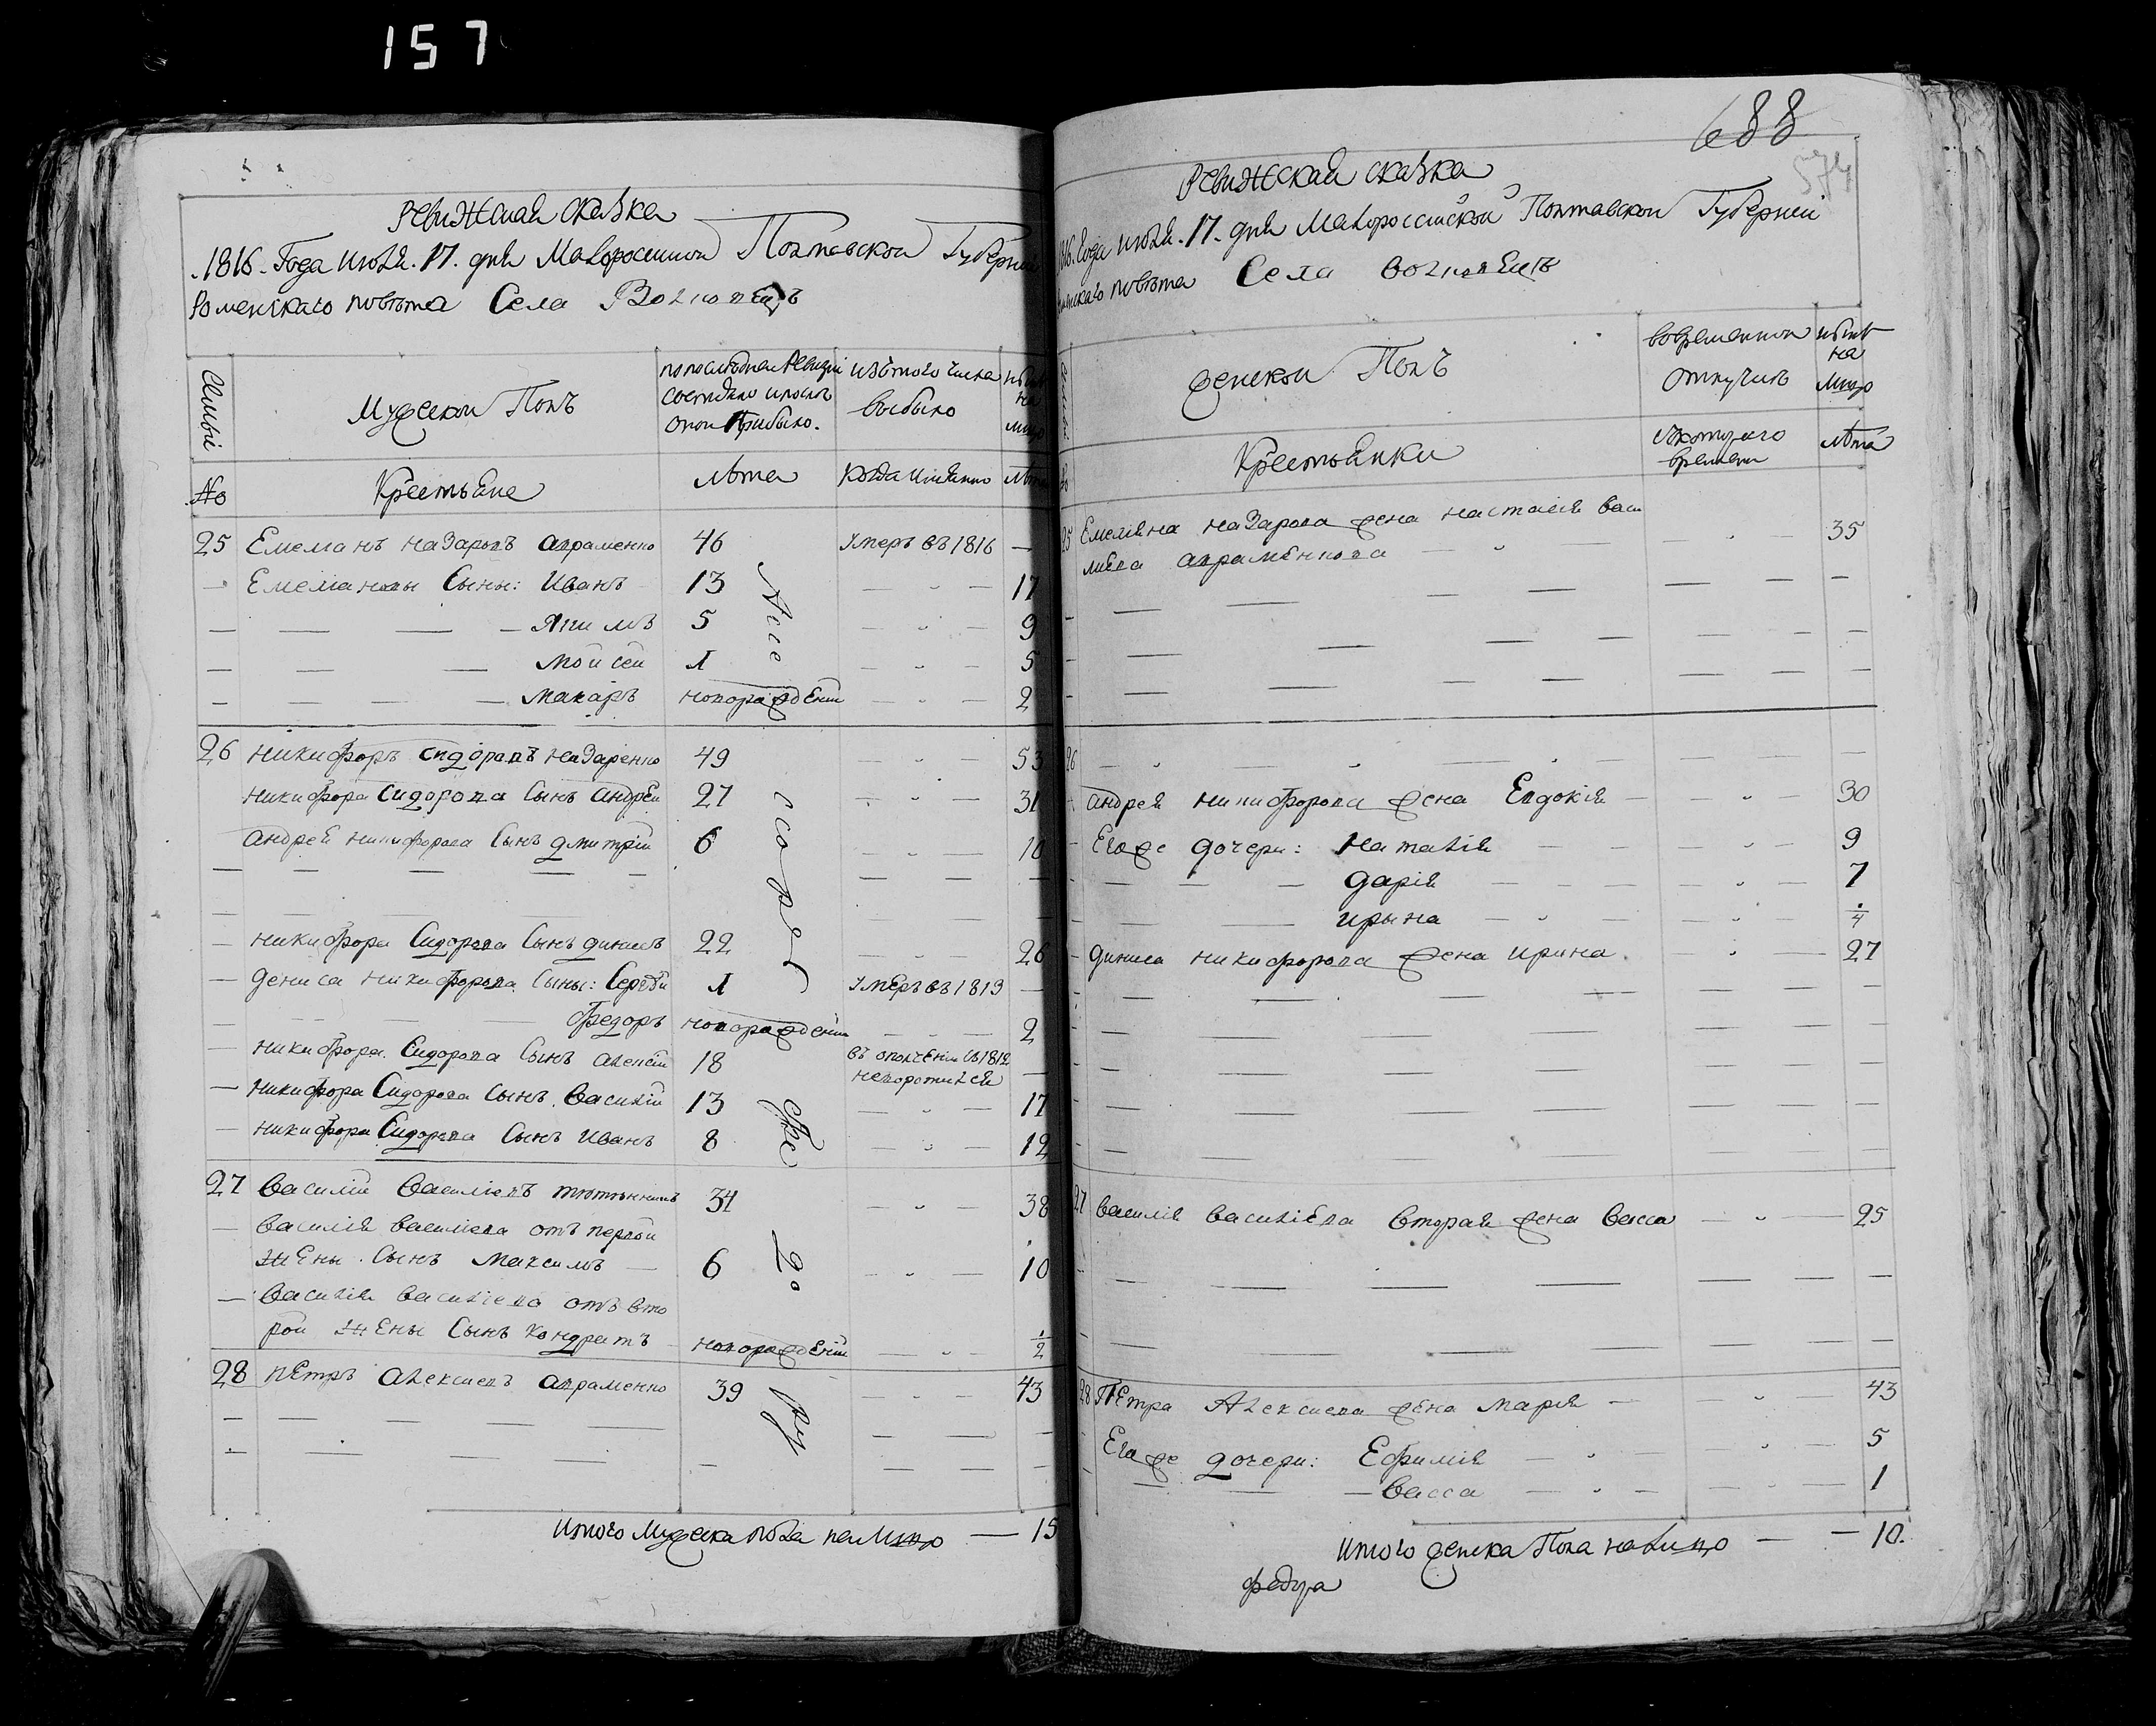 157
Ревижская сказка
1816. Года июля. 17. дня Малоросийской Полтавской Губернии
Роменскаго повѣта Села Волковецъ
Семьи
Мужеской Полъ
по последней Ревизіи состояло и после оной прибыло.
изътого числа выбыло
ныне на лицо
№
Крестьяне
Лѣта
Когда имянно
Лѣта
25 Емелианъ Назаровъ Авраменко 46 умеръ въ 1816 —
Емелиановы Сыны: Иванъ 13 17
Якимъ 5 9
Мойсей 1 5
Макаръ новорожденій 2
26 Никифоръ Сидоровъ Назаренко 49 53
Никифора Сидорова Сынъ Андрей 27 31
Андрея Никифорова Сынъ Дмитрій 6 10
Никифора Сидорова Сынъ Динисъ 22 26
Дениса Никифорова Сыны: Сергѣй 1 умеръ въ 1813 —
Федоръ новорожденій 2
Никифора Сидорова Сынъ Алексій 18 въ ополченіи съ 1812
неворотился
Никифора Сидорова Сынъ Василій 13 17
Никифора Сидорова Сынъ Иванъ 8 12
27 Василій Васильевъ 34 38
Василія Васильева отъ первой
жены Сынъ Максимъ 6 10
Василія Васильева отъ вто
рой жены Сынъ Кондратъ новорожденій 1/2
28 Петръ Алексиевъ Авраменко 39 43
Итого Мужеска пола налицо — 15
688
574
Ревижская сказка
1816. Года июля. 17. дня Малороссийской Полтавской Губерніи
Роменскаго повѣта Села Волковецъ
Женской Полъ
вовременной отлучкѣ
ныне на лицо
Крестьянки
съкотораго времени
лѣта
25 Емеліяна Назарова жена Настасія Васи
лиева Авраменкова 35
26
Андрея Никифорова жена Евдокія 30
Егоже дочери: Наталія 9
Дарія 7
Ирына 1/4
Диниса Никифорова жена Ирина 27
27 Василія Василіева вторая жена Васса 25
28 Петра Алексиева жена Марія 43
Егоже дочери: Ефимія 5
Васса 1
Итого женска Пола налицо — 10.